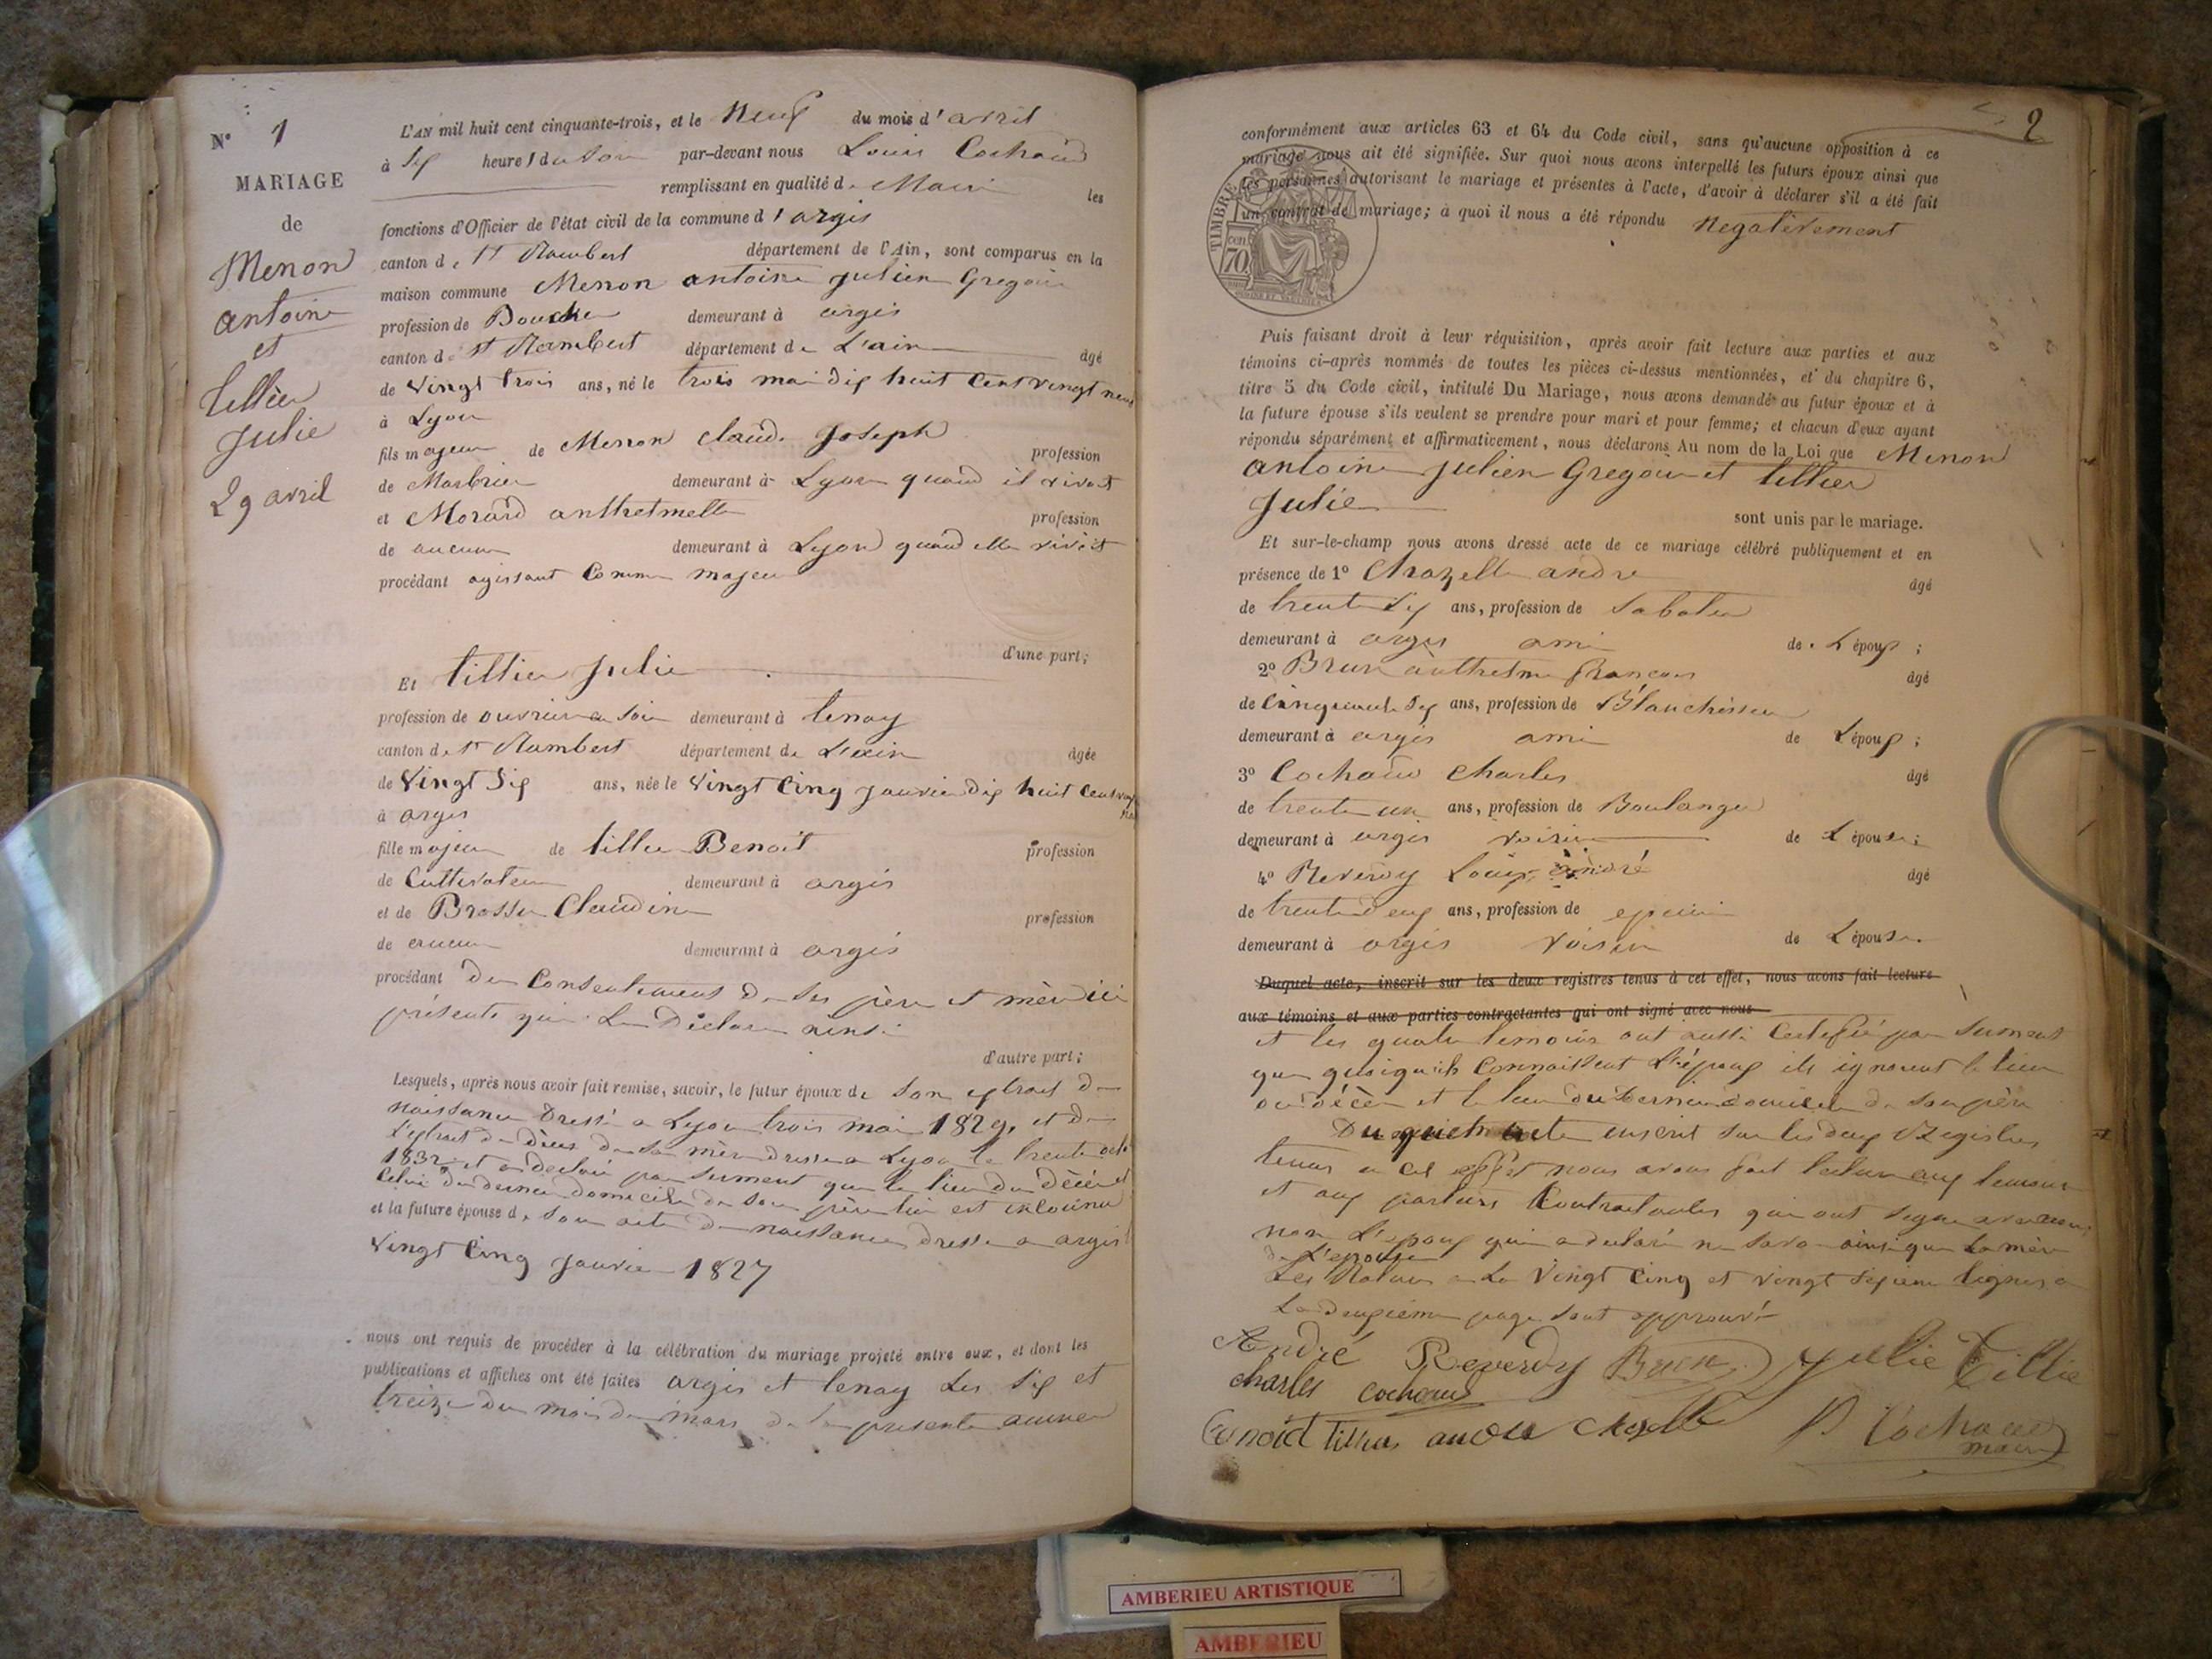 N° 1
MARIAGE
de
Menon
antoine
et
tillier
Julie
29 avril
L'AN mil huit cent cinquante-trois, et le Neuf du mois d'avril
à six heures du soir par-devant nous Louis Cochaud
remplissant en qualité de Maire les
fonctions d'Officier de l'état civil de la commune d'argis
canton de St Rambert département de l'Ain, sont comparus en la
maison commune Menon antoine julien Gregoire
profession de Boucher demeurant à argis
canton de St Rambert département de L'ain âgé
de vingt trois ans, né le trois mai dix huit cent vingt neuf
à Lyon
fils majeur de Menon Claude Joseph profession
de Marbrier demeurant à Lyon quand il vivait
et Morard anthelmette profession
de aucune demeurant à Lyon quand elle vivait
procédant agissant Comme majeur
d'une part;
Et tillier Julie
profession de ouvrière en soie demeurant à tenay
canton de St Rambert département de L'ain âgée
de vingt six ans, née le vingt cinq janvier dix huit cent vingt
à argis
fille majeure de tillier Benoit profession
de Cultivateur demeurant à argis
et de Brosse Claudine profession
de aucune demeurant à argis
procédant du Consentement de ses père et mère ici
présents qui Le Déclare ainsi
d'autre part;
Lesquels, après nous avoir fait remise, savoir, le futur époux de son extrait de
naissance Dressé a Lyon trois mai 1829, et de
l'extrait de décès de sa mère dressé a Lyon le trente
1832 et a déclaré par serment que le lieu du décès et
celui du dernier domicile de son père lui est inconnu
et la future épouse de son acte de naissance dressé a argis
vingt cinq janvier 1827
nous ont requis de procéder à la célébration du mariage projeté entre eux, et dont les
publications et affiches ont été faites argis et tenay les six et
treize du mois de mars de la presente année
2
conformément aux articles 63 et 64 du Code civil, sans qu'aucune opposition à ce
mariage nous ait été signifiée. Sur quoi nous avons interpellé les futurs époux ainsi que
les personnes autorisant le mariage et présentes à l'acte, d'avoir à déclarer s'il a été fait
un contrat de mariage; à quoi il nous a été répondu negativement
TIMBRE
cen
70
Puis faisant droit à leur réquisition, après avoir fait lecture aux parties et aux
témoins ci-après nommés de toutes les pièces ci-dessus mentionnées, et du chapitre 6,
titre 5 du Code civil, intitulé Du Mariage, nous avons demandé au futur époux et à
la future épouse s'ils veulent se prendre pour mari et pour femme; et chacun d'eux ayant
répondu séparément et affirmativement, nous déclarons Au nom de la Loi que Menon
antoine julien Gregoire et tillier
Julie sont unis par le mariage.
Et sur-le-champ nous avons dressé acte de ce mariage célébré publiquement et en
présence de 1° Chazelle andré âgé
de trente six ans, profession de Sabotier
demeurant à argis ami de L'époux ;
2° Brun anthelme françois âgé
de cinquante six ans, profession de Blanchisseur
demeurant à argis ami de L'époux ;
3° Cochaud Charles âgé
de trente un ans, profession de Boulanger
demeurant à argis voisin de L'épouse;
4° Reverdy Louis andré âgé
de trente deux ans, profession de epicier
demeurant à argis voisin de L'épouse.
Duquel acte, inscrit sur les deux registres tenus à cet effet, nous avons fait lecture
aux témoins et aux parties contractantes qui ont signé avec nous
et les quatre temoins ont aussi certifié par serment
que quoiqu'ils connaissent L'époux ils ignorent le lieu
du décès et le lieu du Dernier domicile de son père
Duquel acte inscrit sur les deux Registres
tenus a cet effet nous avons fait lecture aux temoins
et aux parties Contractantes qui ont signé avec nous
non L'epoux qui a déclaré ne savoir ainsi que La mère
de L'epouse
Les Ratures a La vingt cinq et vingt sixieme lignes a
La deuxième page sont approuvé
André Reverdy Brun Julie Tillie
charles cochaud
benoid Tillier andre chazelle Cochaud
maire
AMBERIEU ARTISTIQUE
AMBERIEU